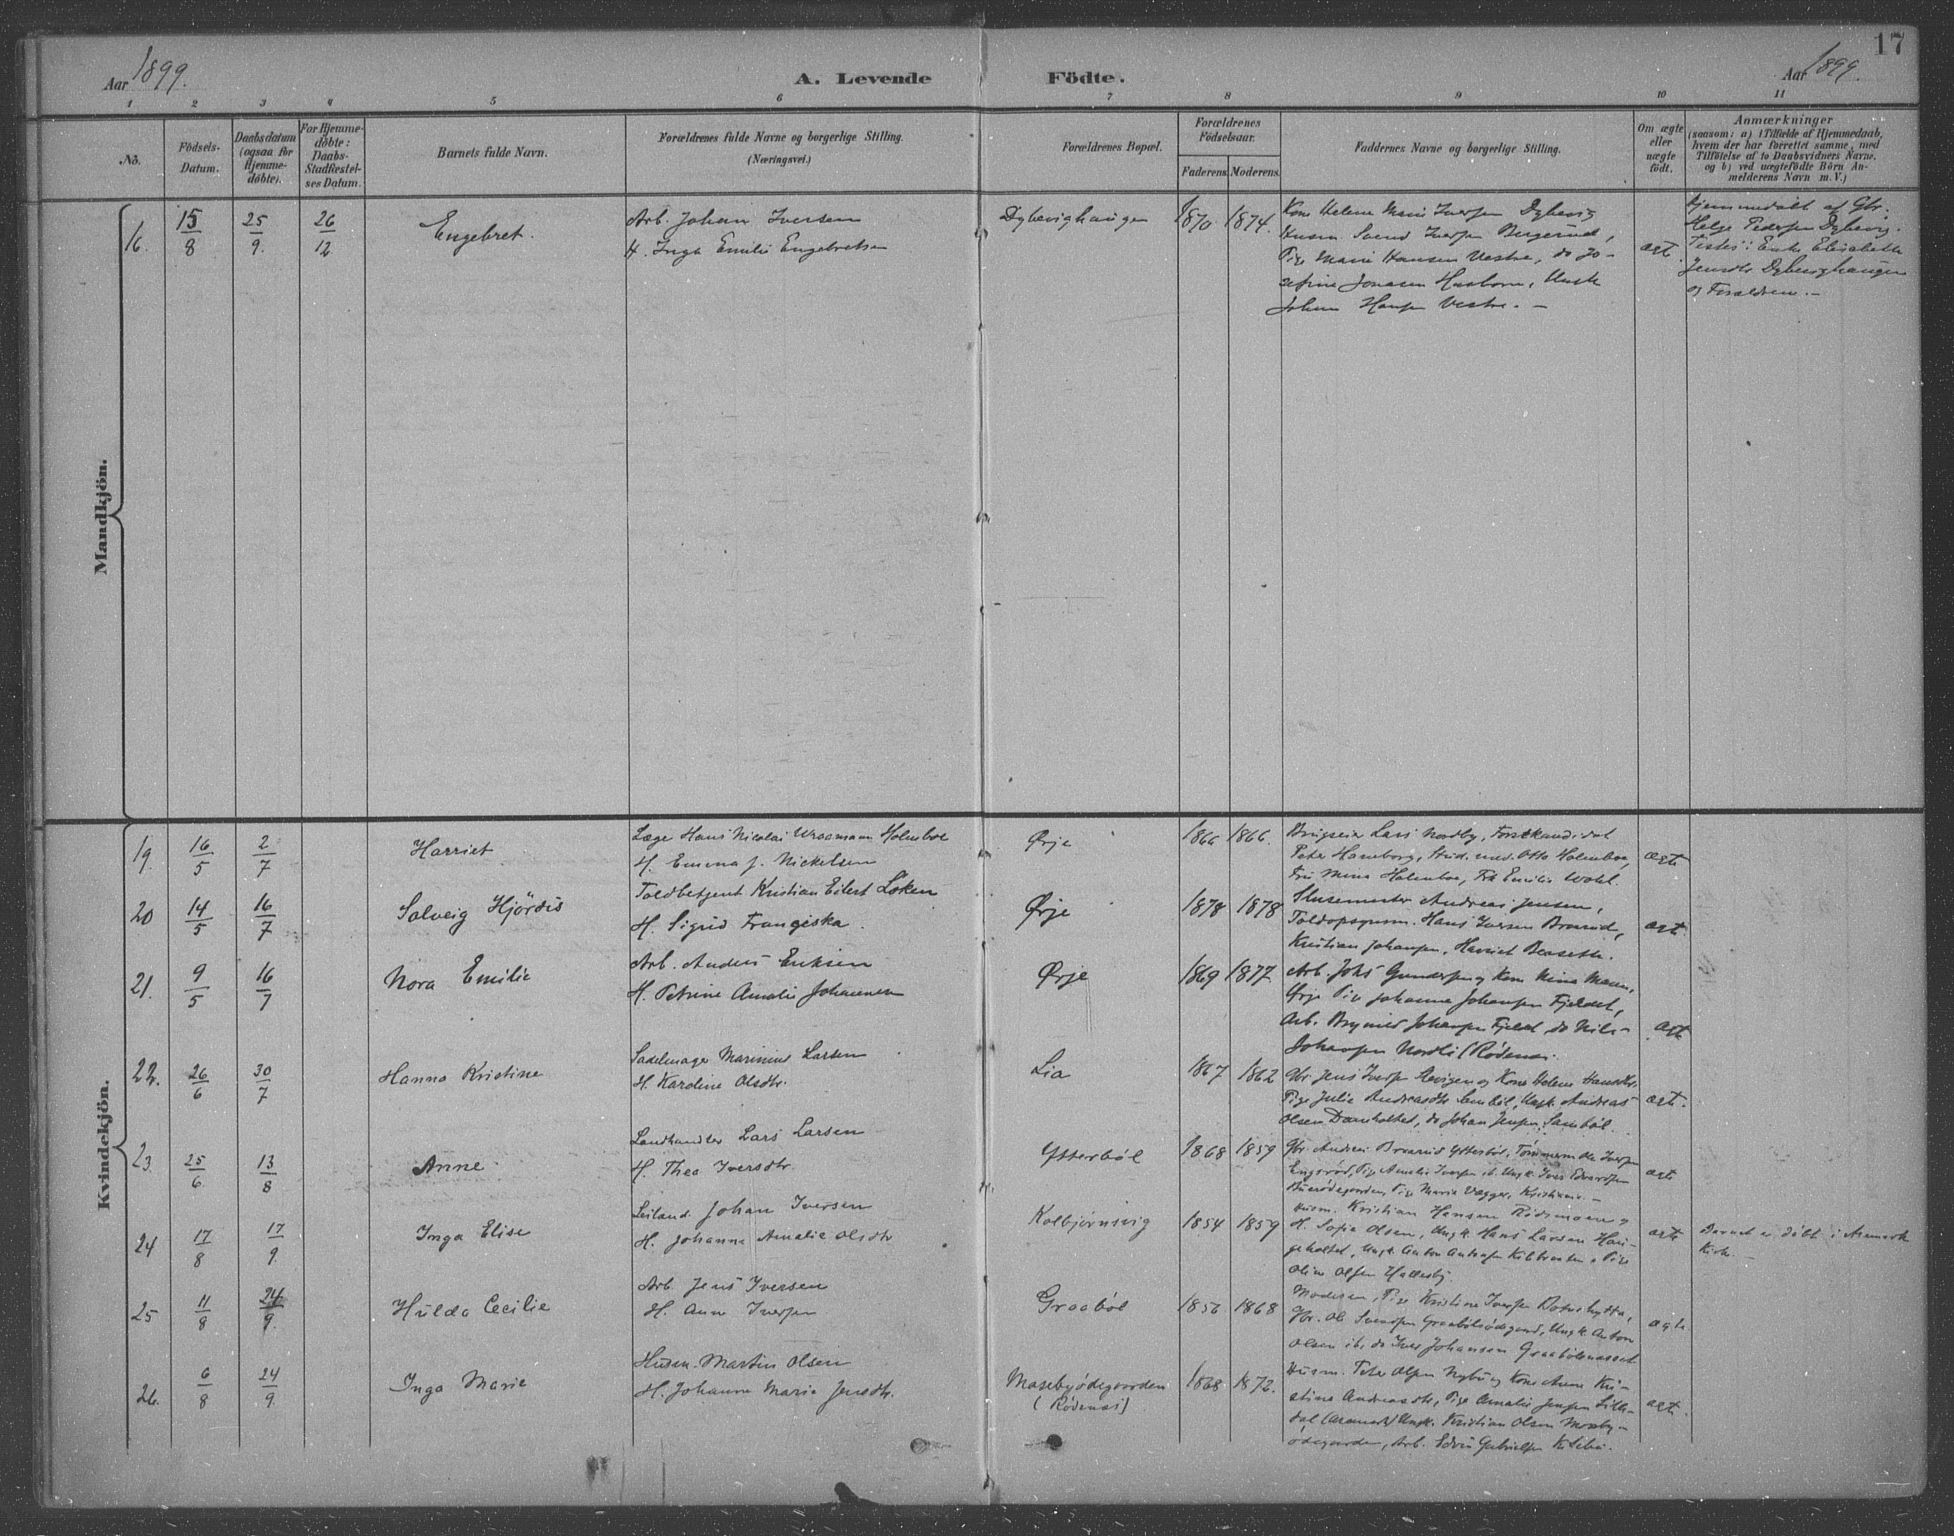 17
Aar 1899.
A. Levende Födte.
Aar 1899.
1 2 3 4 5 6 7 8 9 10 11
No.
Födsels-Datum.
Daabsdatum (ogsaa for Hjemmedöbte).
For Hjemmedöbte: Daabs-Stadfæstelses Datum.
Barnets fulde Navn.
Forældrenes fulde Navne og borgerlige Stilling.
(Næringsvei.)
Forældrenes Bopæl.
Forældrenes Födselsaar.
Faderens. Moderens.
Faddernes Navne og borgerlige Stilling.
Om ægte eller uægte födt.
Anmærkninger
(saasom: a) i Tilfælde af Hjemmedaab,
hvem der har forrettet samme, med
Tilföielse af to Daabsvidners Navne,
og b) ved uægtefödte Börn An-
melderens Navn m. V.)
Mandkjön.
16. 15/8 25/9. 26/12 Engebret.
Arb. Johan Iversen
H. Inga Emilie Engebretsen
Dybevighaugen 1870. 1874.
Kone Helene Marie Iversen Dybevig
Husm Svend Iversen Bergerud,
Pige Marie Hansen Vestre, do Jo-
sefine Jonassen, Ungk
Johan Hansen Vestre. —
ægt.
Hjemmedøbt af Gbr.
Helge Pedersen Dybevig.
Testes: Enke Elisabeth
Jensdtr Dybevighaugen
og Forældren. —
Kvindekjön.
19. 16/5 2/7 Harriet
Læge Hans Nicolai Wraamann Holmboe
H. Emma J. Nickelsen
Ørje 1866 1866.
Brugseier Lars Nordby, Forstkandidat
Peter Haneborg, Stud. med. Otto Holmboe,
Fru Mina Holmboe, Frk Emilie Wohl.
ægte
20 14/5 16/7 Solveig Hjördis
Toldbetjent Kristian Eilert Løken
H. Sigrid Frangiska.
Ørje 1878 1878
Slusemester Andreas Jensen,
Toldopsynsm. Hans Iversen Braarud,
Kristian Johansen, Harriet
ægt.
21. 9/5 16/7 Nora Emilie
Arb. Anders Eriksen
H. Petrine Amalie Johannesen
Ørje 1869 1877
Arb. Johs Gundersen og Kone Mina
Ørje Pige Johanna Johansen Fjeldet,
Arb. Johansen Fjeldet, do Nils
Johansen Nordli (Rødenes.
ægt
22. 26/6 30/7 Hanna Kristine
Sadelmager Marinius Larsen
H. Karoline Olsdtr.
Lia 1867 1862
Gbr. Jens Iversen og Kone Helene Hansdtr.
Pige Julie Andreasdtr Sambøl, Ungk. Andreas
Olsen Damholtet, do Johan Jensen Sambøl.
ægt.
23. 25/6 13/8 Anne
Landhandler Lars Larsen
H. Thea Iversdtr.
Ytterbøl 1868 1859
Gbr. Andreas Braarud Ytterbøl, Tømmerm Ole Iversen
Engsrød, Pige Amalie Iversen ib. Ungk. Iver Edvardsen
Buerødegården, Pige Maria Vagger, Kristiania. —
ægt
24 17/8 17/9. Inga Elise
Leiland. Johan Iversen
H. Johanne Amalie Olsdtr
Kolbjørnsvig 1854 1859
Husm. Kristian Hansen og
H. Sofie Olsen, Ungk Hans Larsen Hau-
geholtet, Ungk. Anton Pige
Oline Olsen Hallesby.
ægt
Barnet er døbt i Aremark
Kirk. —
25 11/8 24/9. Hulda Cecilie
Arb. Jens Iversen
H. Anne Iversen
Graabøl 1856 1868
Moderen, Pige Kristine Iversen
Gbr. Ole Svendsen Graabølsødegaard, Ungk Anton
Olsen ib, do Iver Johansen Graabølenæsset
ægte
26. 6/8 24/9. Inga Marie
Husm. Martin Olsen
H. Johanne Marie Jensdtr.
Masebyødegaarden
(Rødenæs)
1868 1872.
Husm. Peter Olsen Nybu og Kone Anne Kri-
stine Andreasdtr, Pige Amalie Jensen Lille-
dal (Aremark) Ungk. Kristian Olsen Maseby-
ødegaarden, Arb. Edvin Gabrielsen
ægt.